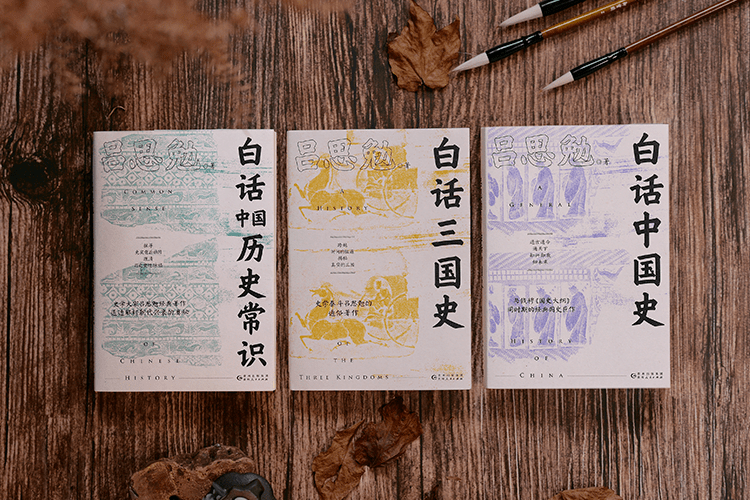 吕思勉◎著
白话中国历史常识
COMMON
SENSE
史学大家吕思勉经典著作
OF
CHINESE
HISTORY
吕思勉◎著
白话三国史
A
HISTORY
史学泰斗吕思勉的
通俗著作
OF
THE
THREE KINGDOMS
吕思勉◎著
白话中国史
A
GENERAL
与钱穆《国史大纲》
同时期的经典国史巨作
HISTORY
OF
CHINA